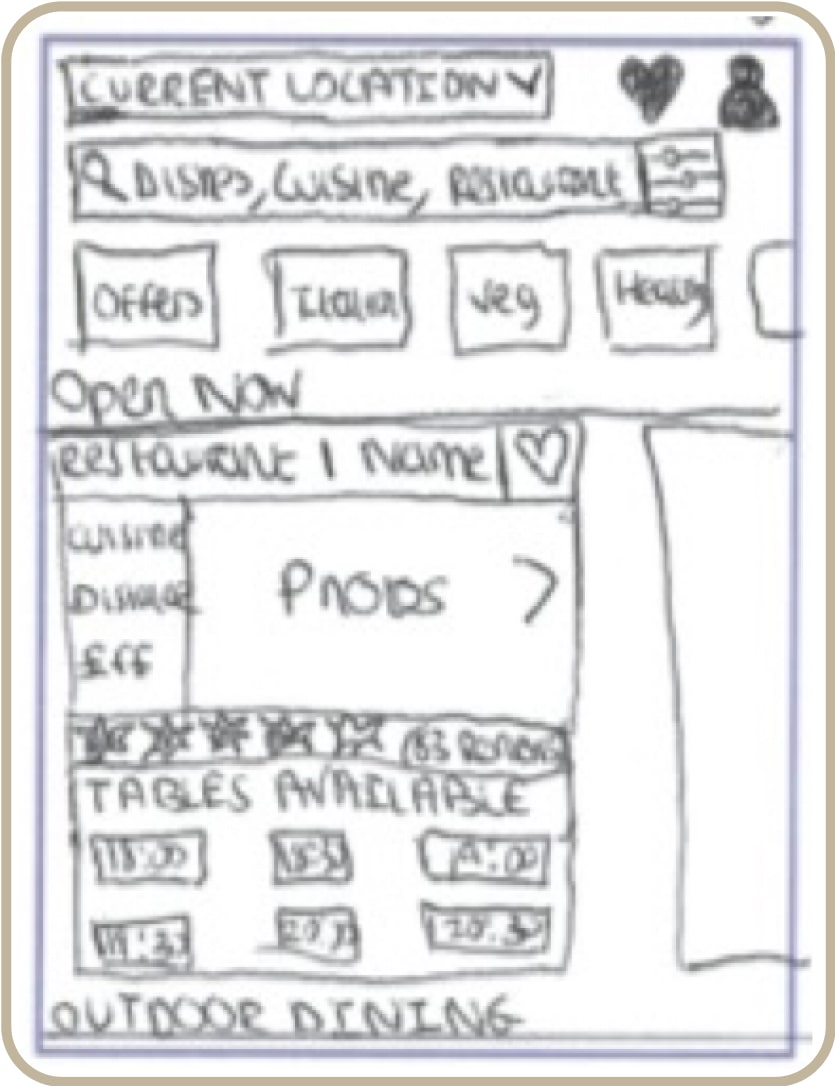 CURRENT LOCATION
Dishes, Cuisine, Restaurant
Offers
Italian
Veg
Healthy
Open Now
Restaurant 1 Name
Cuisine
Distance
£££
Photos
(83 Reviews)
TABLES AVAILABLE
18:00 18:30 19:00
19:30 20:00 20:30
OUTDOOR DINING